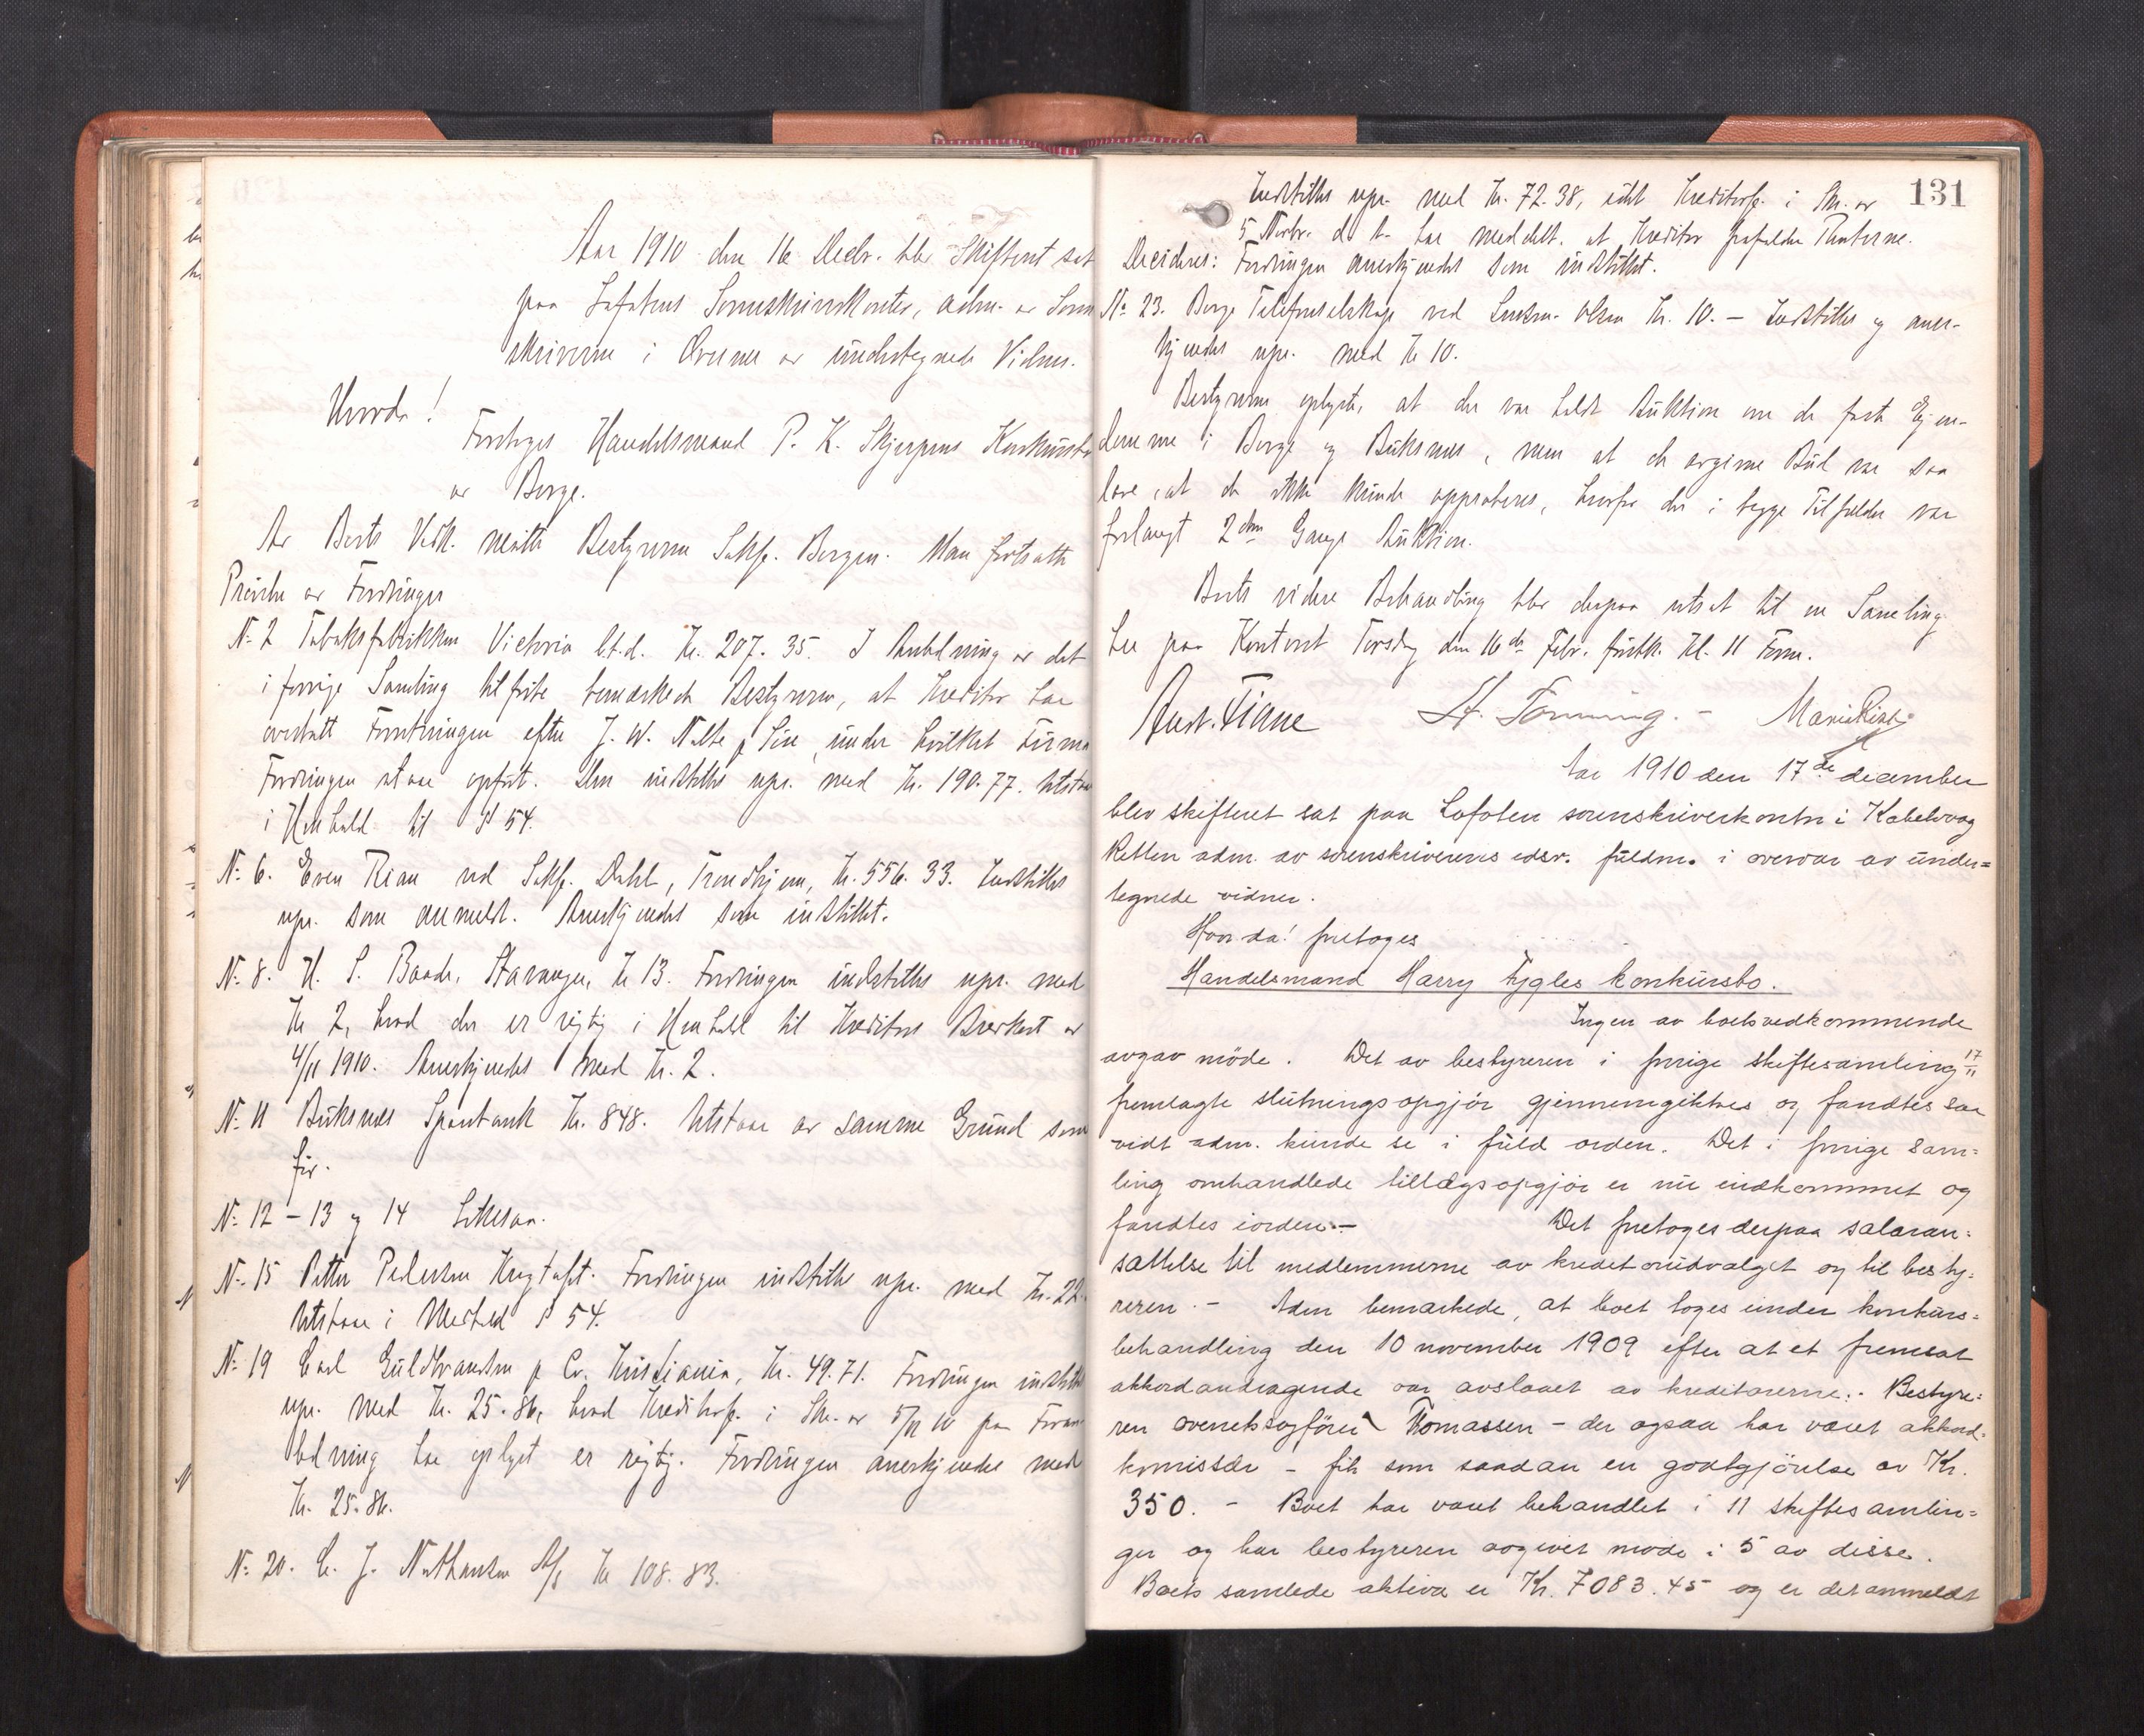 Aar 1910 den 16 Decbr. blev Skifteret sat
paa Lofotens Sorenskriverkontor, adm. av Soren
skriveren i Overvær av undertegnede Vidner.
Hvorda!
Foretoges Handelsmand P. K. Skjerpens Konkursbo
av Borge.
Av Boets Vedk. møtte Bestyreren Sakf. Bergen. Man fortsatte
Prøvelse av Fordringer
No 2 Tobaksfabrikken Victoria Ltd. Kr. 207.35. I Anledning av det
i forrige Samling tilførte bemærkede Bestyreren, at Kreditor har
overtatt Forretningen efter J. W. Nolte & Søn, under hvilket Firma
Fordringen staar opført. Den indstilles upr. med Kr. 190.77. Utstaar
i Henhold til § 54.
No 6. Even Rian ved Sakf. Dahl, Trondhjem, Kr. 556.33. Indstilles
upr. som anmeldt. Anerkjendes som indstillet.
No 8. H. S. Baade, Stavanger, Kr 13. Fordringen indstilles upr. med
Kr 2, hvad der er rigtig i Henhold til Kreditors Brevkort av
4/11 1910. Anerkjendes med Kr. 2.
No 11 Buksnes Sparebank Kr. 848. Utstaar av samme Grund som
før.
No 12 - 13 og 14 Likesaa.
No 15 Petter Pedersen Fordringen indstilles upr. med Kr. 22.
Utstaar i Medhold § 54.
No 19 Carl Guldbrandsen & Co. Kristiania, Kr. 49.71. Fordringen indstilles
upr. med Kr. 25.86, hvad Kreditorf. i Skr. av 5/11 10 paa Foran
ledning har oplyst er rigtig. Fordringen anerkjendes med
Kr. 25.86.
No 20. C. J. Nathansen A/S Kr 108.83.
131
Indstilles upr. med Kr. 72.38, idet Kreditorf. i Skr. av
5 Novbr. d. A. har meddelt, at Kreditor frafalder Renterne.
Decideres: Fordringen anerkjendes som indstillet.
No 23. Borge Telefonselskap ved Lensm. Olsen Kr. 10. - Indstilles og aner-
kjendes upr. med Kr 10.
Bestyreren oplyste, at der var holdt Auktion over de faste Ejen-
domme i Borge og Buksnes, men at de avgivne Bud var saa
lave, at de ikke kunde approberes, hvorfor der i begge Tilfælder var
forlangt 2den Gangs Auktion.
Boets videre Behandling blev derpaa utsat til en Samling
her paa Kontoret Torsdag den 16de Febr. førstk. Kl. 11 Form.
Aust. Fiane H. Tönning. - Marie
Aar 1910 den 17de december
blev skifteret sat paa Lofoten sorenskriverkontor i Kabelvaag
Retten adm. av sorenskriverens edsv. fuldm. i overvær av under=
tegnede vidner.
Hvor da! foretoges
Handelsmand Harry Fygles konkursbo.
Ingen av boets vedkommende
avgav möde. Det av bestyreren i forrige skiftesamling 17/11
fremlagte slutningsopgjör gjennemgikkes og fandtes saa
vidt adm. kunde se i fuld orden. Det i forrige sam=
ling omhandlede tillægsopgjör er nu indkommet og
fandtes iorden. - Det foretoges derpaa salæran=
sættelse til medlemmerne av kreditorudvalget og til besty=
reren. - Adm bemærkede, at boet toges under konkurs=
behandling den 10 november 1909 efter at et fremsat
akkordandragende var avslaaet av kreditorerne. Bestyre=
ren overretssagförer Thomassen - der ogsaa har været akkord=
komissær - fik som saadan en godtgjörelse av Kr.
350. - Boet har været behandlet i 11 skiftesamlin=
ger og har bestyreren avgivet möde i 5 av disse.
Boets samlede aktiva er Kr. 7083.45 og er det anmeldt